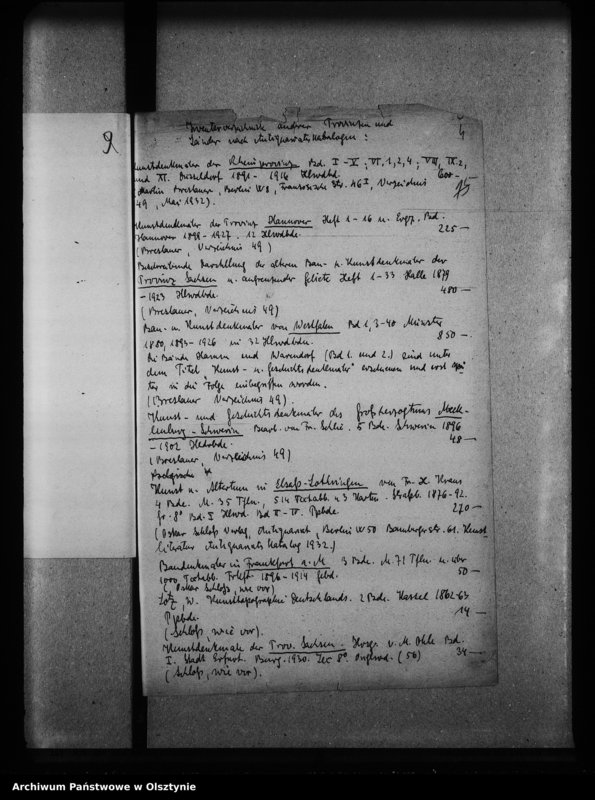 9
Inventarverzeichnisse anderer Provinzen und
Länder nach Antiquariatskatalogen:
Kunstdenkmäler der Rheinprovinz Bd. I-V; VI, 1,2,4; VIII, IX 2,
und XI. Düsseldorf 1891-1916 Hlwdbd.
Martin Breslauer, Berlin W8, Französische Str. 46 I, Verzeichnis
49, Mai 1932).
Kunstdenkmäler der Provinz Hannover Heft 1-16 u. Ergz. Bd.
Hannover 1899-1927. 12 Hlwdbde. 225-
(Breslauer, Verzeichnis 49)
Beschreibende Darstellung der älteren Bau- u. Kunstdenkmäler der
Provinz Sachsen u. angrenzender Gebiete Heft 1-33 Halle 1879
-1923 Hlwdbde. 480-
(Breslauer, Verzeichnis 49)
Bau- u. Kunstdenkmäler von Westfalen Bd 1, 3-40 Münster
1880, 1893-1926 in 32 Hlwdbden. 850-
Die Bände Hamm und Warendorf (Bd 1. und 2.) sind unter
dem Titel "Kunst- u. Geschichtsdenkmäler" erschienen und erst spä
ter in die Folge einbegriffen worden.
(Breslauer Verzeichnis 49).
Kunst- und Geschichtsdenkmäler des Großherzogtums Meck-
lenburg-Schwerin Bearb. von Fr. Schlie. 5 Bde. Schwerin 1896
-1902 Hldrbde. 48-
(Breslauer, Verzeichnis 49)
Kunst u. Altertum in Elsaß-Lothringen von Fr. X. Kraus
4 Bde. M. 35 Tfln., 514 Textabb. u 3 Karten. Straßb. 1876-92.
gr. 8° Bd. I Hlwd. Bd II-IV. Ppbde. 270-
(Oskar Schloß Verlag, Antiquariat, Berlin W50 Bambergerstr. 61. Kunst
literatur Antiquariats Katalog 1932.)
Baudenkmäler in Frankfurt a. M. 3 Bde. M. 71 Tfln. u. über
1000 Textabb. Frkft 1896-1914 gebd. 50-
(Oskar Schloß, wie vor)
Lotz, W. Kunsttopographie Deutschlands. 2 Bde. Kassel 1862-63
Ppbde. 14-
(Schloß, wie vor).
Kunstdenkmale der Prov. Sachsen. Hrsg. v. M. Ohle Bd.
I. Stadt Erfurt. Burg. 1930. Lex 8° Orglwd. (56) 34-
(Schloß, wie vor).
Archiwum Państwowe w Olsztynie